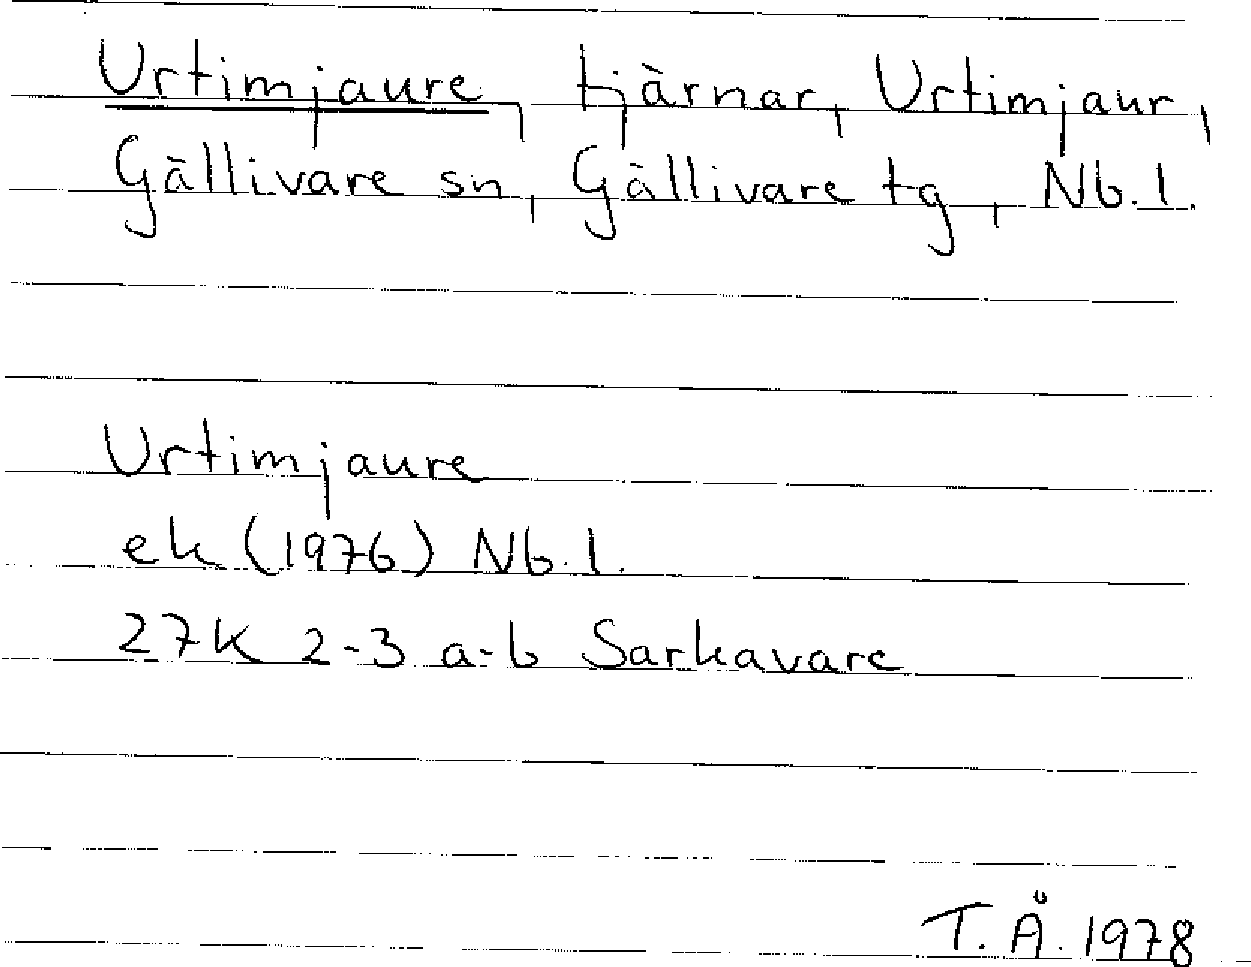 Urtimjaure, tjärnar, Urtimjaur,
Gällivare sn, Gällivare tg, Nb. l.
Urtimjaure
ek (1976) Nb. l.
27K 2-3 a-b Sarkavare
T. Å. 1978